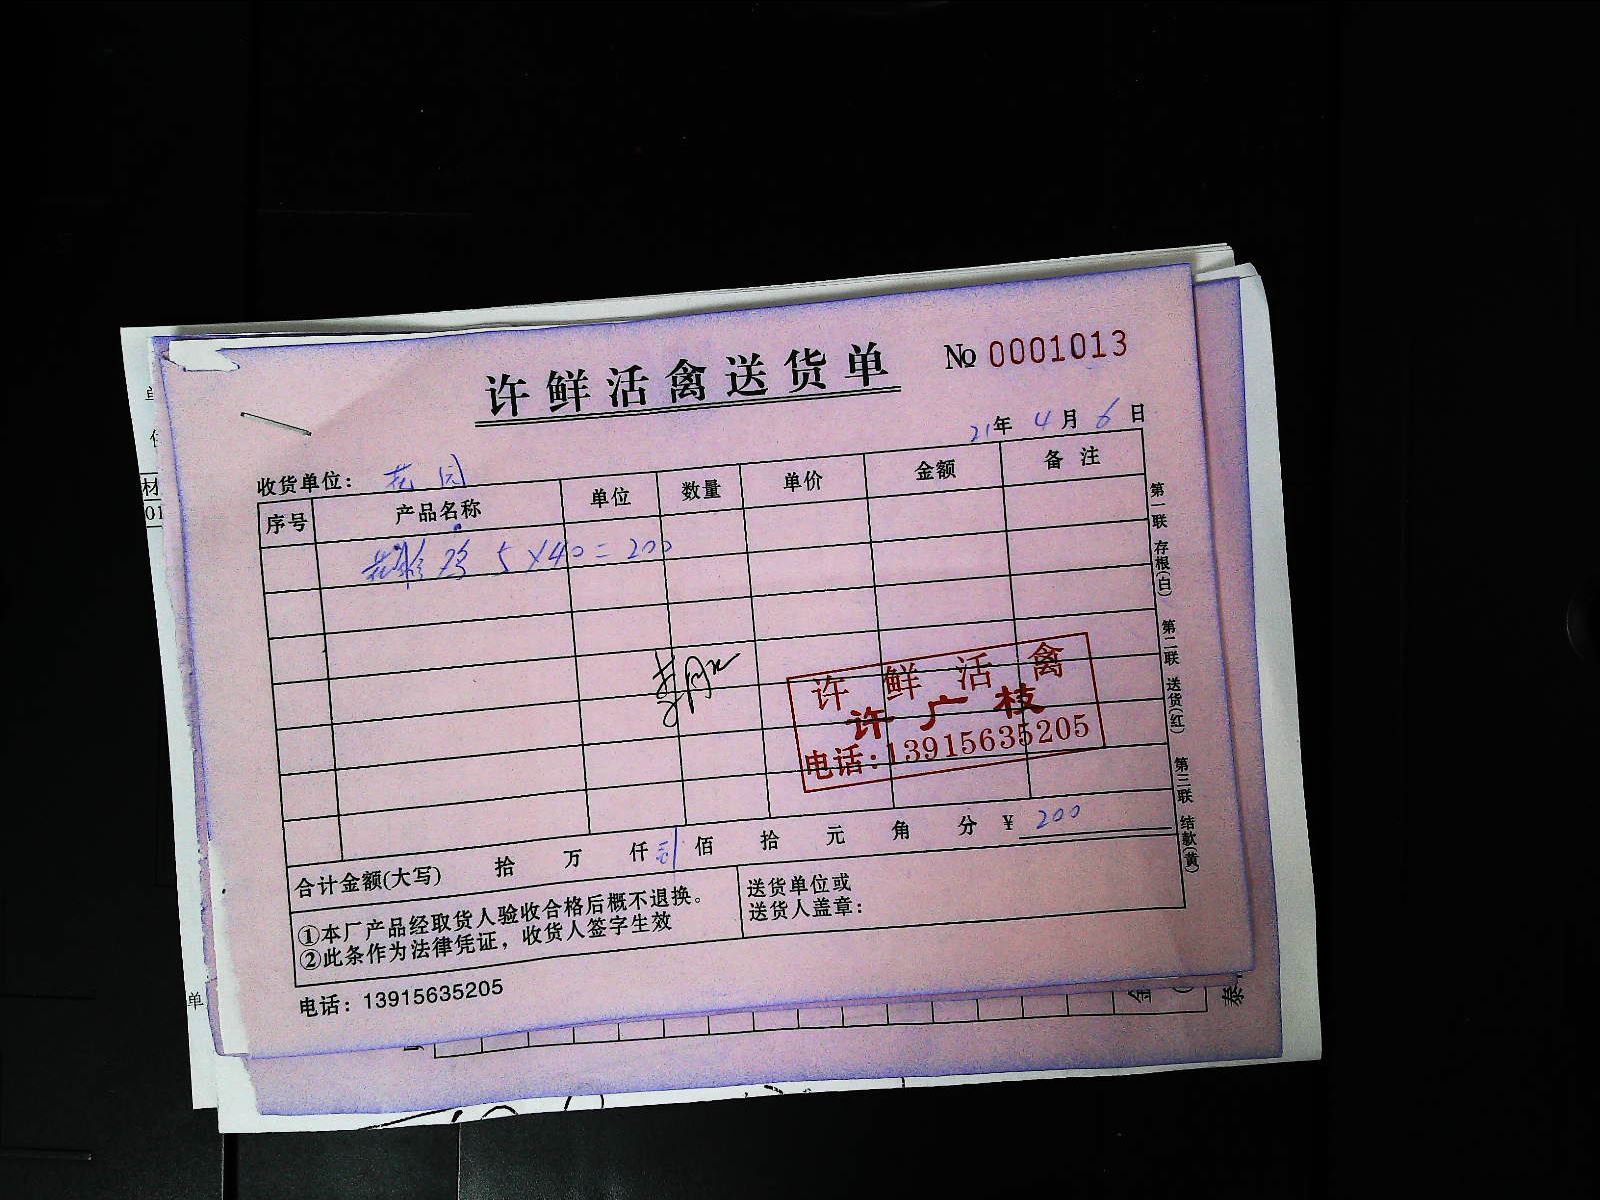 许鲜活禽送货单
No 0001013
21年 4月 6日
收货单位： 花园
序号 产品名称 单位 数量 单价 金额 备注
鸡 5×40=200
许鲜活禽
许广枝
电话:13915635205
合计金额(大写) 拾 万 仟 佰 拾 元 角 分 ¥ 200
①本厂产品经取货人验收合格后概不退换。
②此条作为法律凭证，收货人签字生效
送货单位或
送货人盖章：
电话：13915635205
第一联 存根(白) 第二联 送货(红) 第三联 结款(黄)
材
01
单
泰